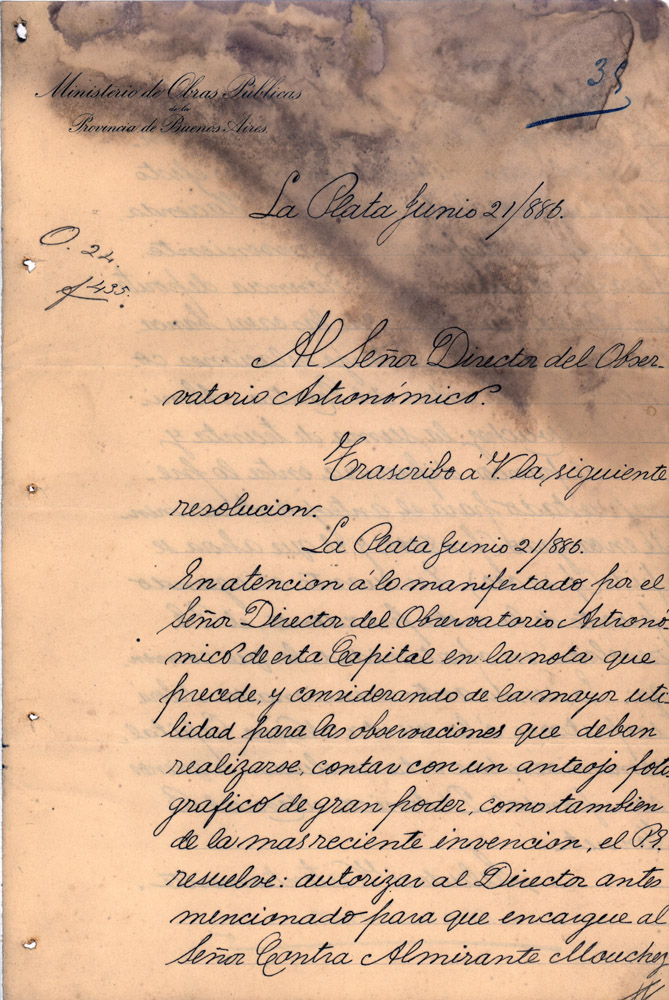 Ministerio de Obras Públicas
de la
Provincia de Buenos Aires.
35
La Plata Junio 21/886.
O. 24.
f 435.
Al Señor Director del Obser-
vatorio Astronómico.
Trascribo á V. la siguiente
resolucion.
La Plata Junio 21/886.
En atencion á lo manifestado por el
Señor Director del Observatorio Astronó
mico de esta Capital en la nota que
precede, y considerando de la mayor uti-
lidad para las observaciones que deban
realizarse, contar con un anteojo foto
grafico de gran poder, como tambien
de la mas reciente invencion, el P.E.
resuelve: autorizar al Director antes
mencionado para que encargue al
Señor Contra Almirante Mouchez